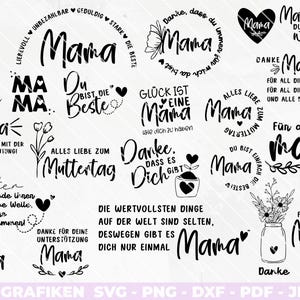 LIEBEVOLL • UNBEZAHLBAR • GEDULDIG • STARK • DIE BESTE
Mama
Danke, dass du immer für mich da bist
Mama
MA
MA
Du
BIST DIE
Beste
GLÜCK IST
EINE
Mama
wie dich zu haben!
ALLES LIEBE ZUM
MUTTERTAG
Mama
DANKE
Mama
FÜR ALL DIE
FÜR ALL DEINE
UND ALL
MIT DER
ALLES LIEBE ZUM
Muttertag
Danke,
DASS ES
DICH
GIBT
DU BIST EINFACH DIE BESTE
Für die
DANKE FÜR DEINE
UNTERSTÜTZUNG
MAMA
DIE WERTVOLLSTEN DINGE
AUF DER WELT SIND SELTEN,
DESWEGEN GIBT ES
DICH NUR EINMAL
Mama
Danke
GRAFIKEN SVG - PNG - DXF - PDF